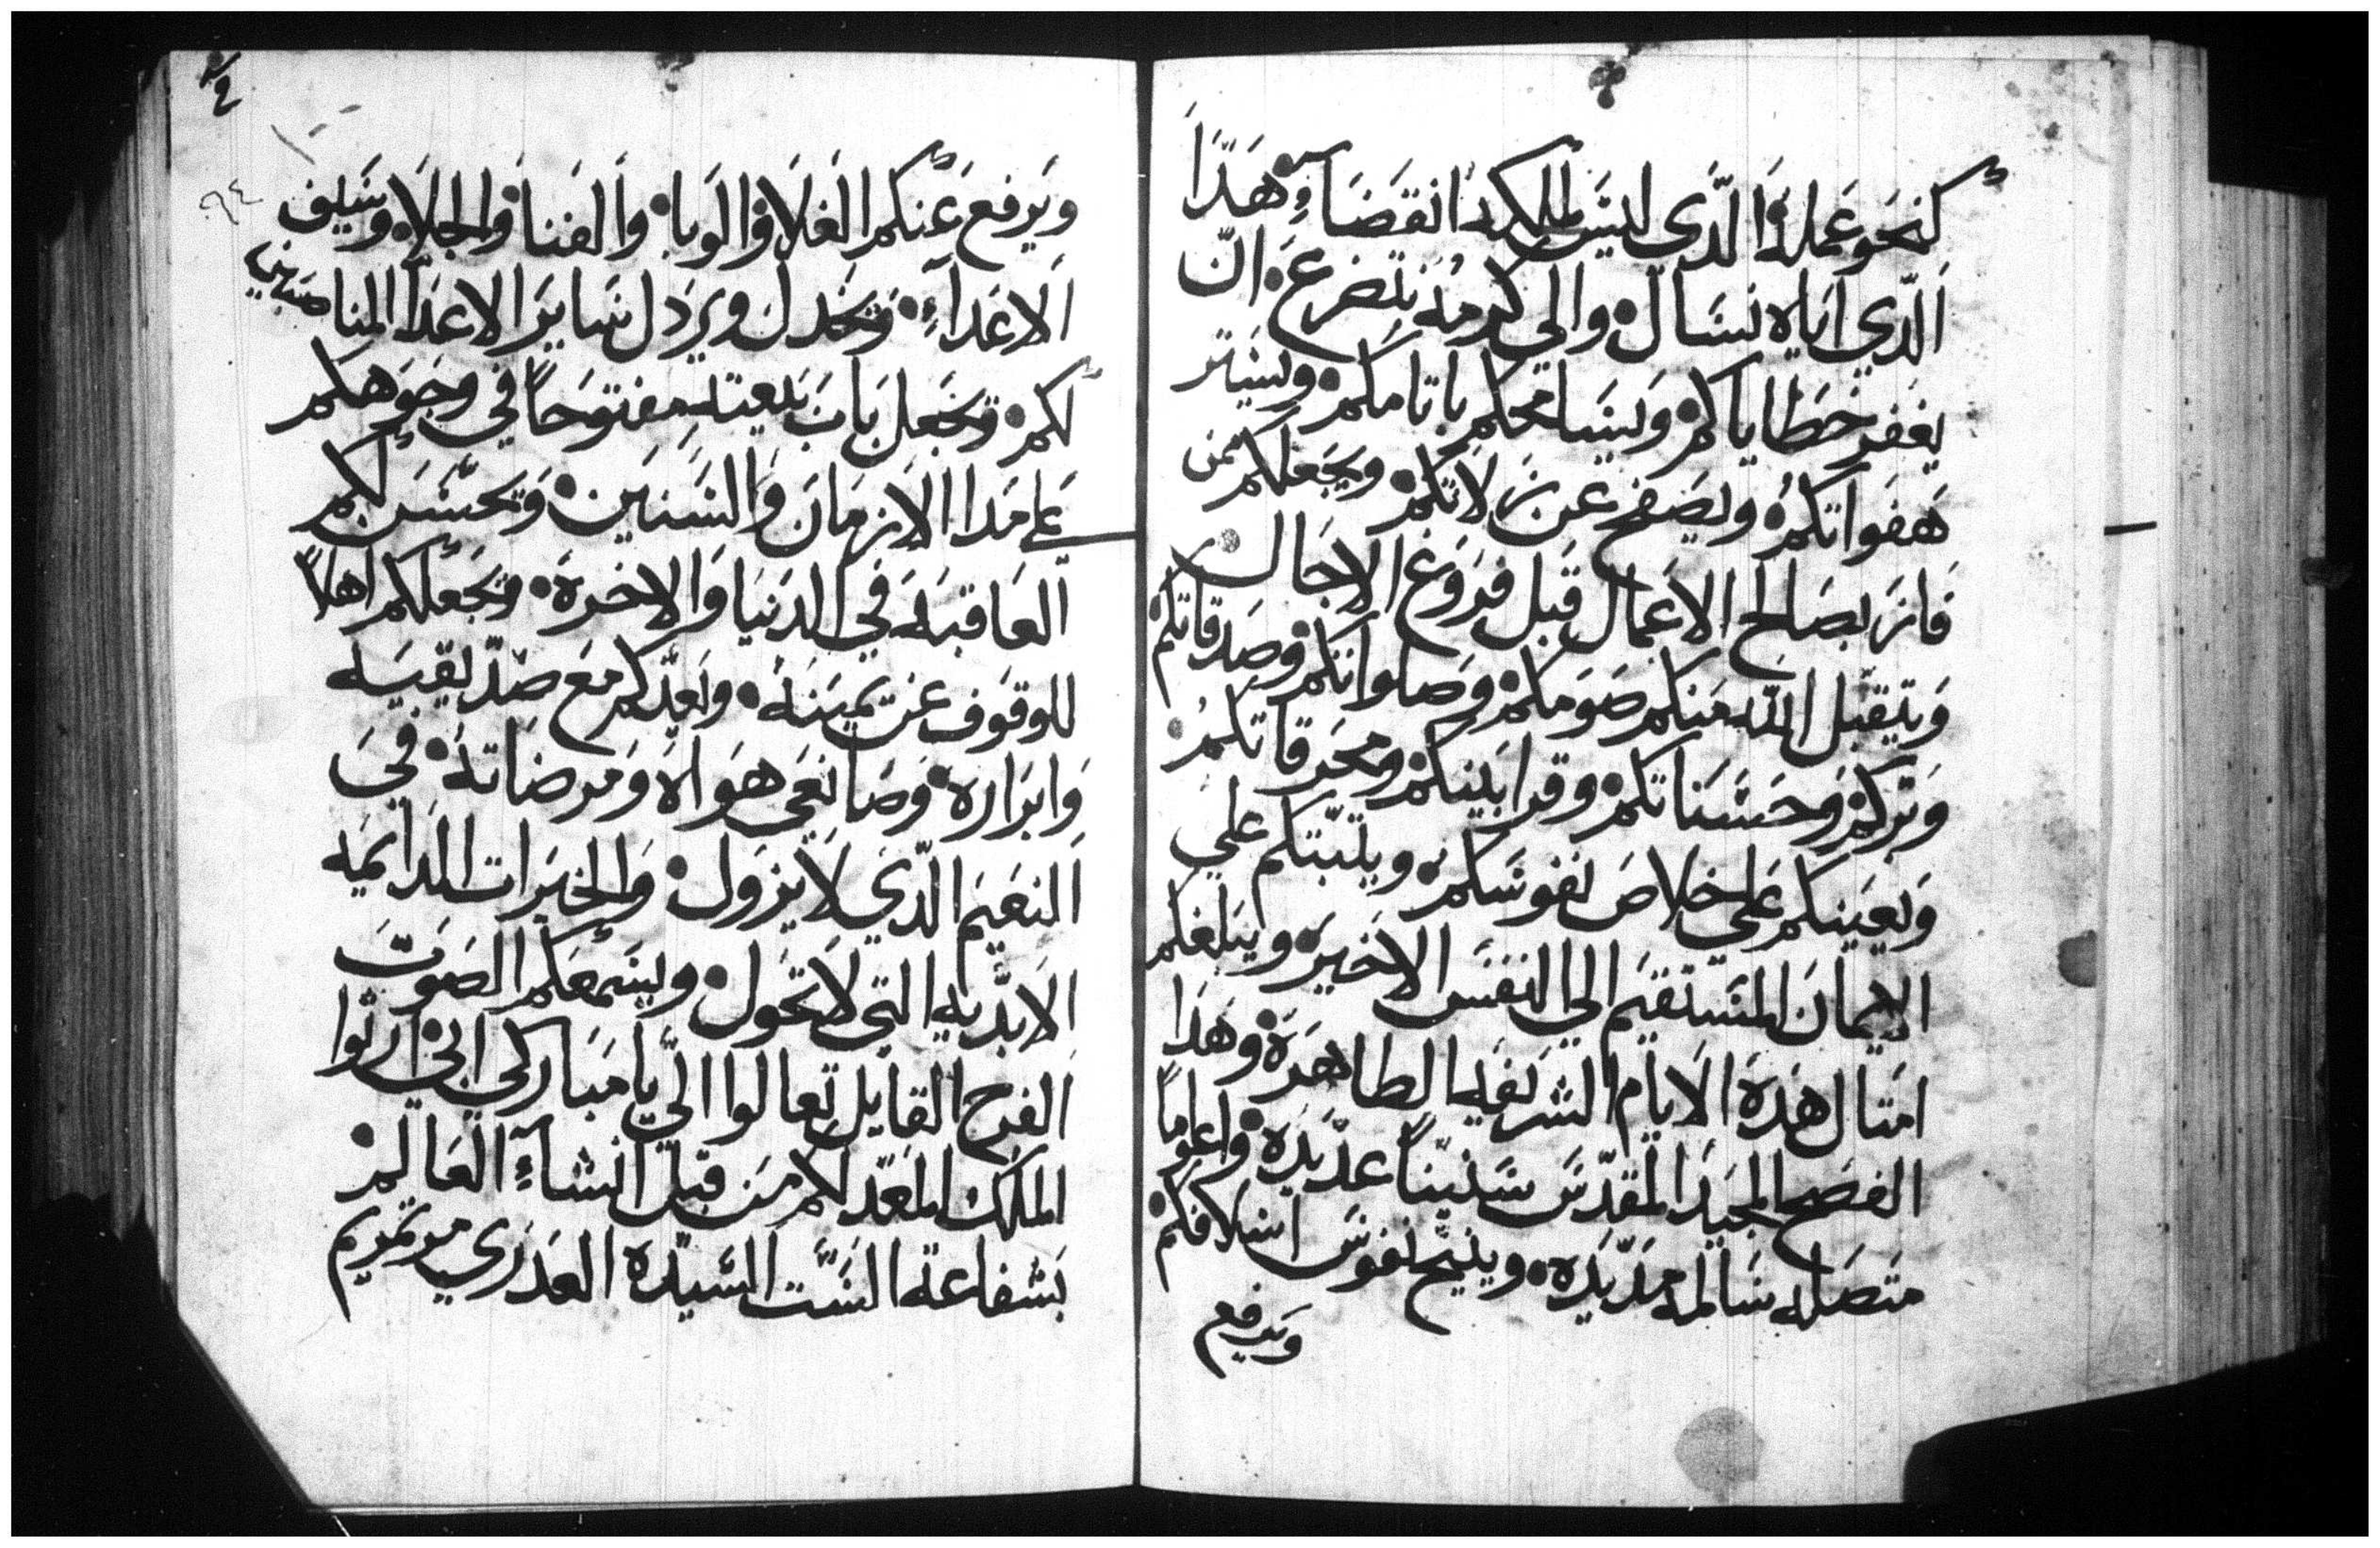 كنحو عمله الذي ليس لملكه انقضاء هذا
الذي اياه نسال والي كرمه نتضرع ان
يغفر خطاياكم ويسامحكم باتامكم ويستر
هفواتكم ويصفح عن زلاتكم ويجعلكم ممن
فاز بصالح الاعمال قبل فروغ الاجال
ويتقبل الله منكم صومكم وصلواتكم وصدقاتكم
وبركم وحسناتكم وقرابينكم ومحرقاتكم
ويعينكم علي خلاص نفوسكم ويثبتكم علي
الايمان المستقيم الي النفس الاخيره ويبلغكم
امتال هذه الايام الشريفه الطاهره وهذا
الفصح المجيد المقدس سنينا عديده واعوما
متصله سالمه مديده وينيح نفوس اسلافكم
ويرفع
٦٤
ويرفع عنكم الغلا والوبا والفنا والجلا وسيف
الاعداء ويخدل ويردل ساير الاعدا المناصبين
لكم ويجعل باب بيعته مفتوحا في وجوهكم
علي مدا الازمان والسنين ويحسن لكم
العاقبه في الدنيا والاخره ويجعلكم اهلا
للوقوف عن يمينه ويعدكم مع صديقيه
وابراره وصانعي هواه ومرضاته في
النعيم الذي لا يزول والخيرات الدايمه
الابديه التي لا تحول ويسمعكم الصوت
الفرح القايل تعالوا الي يا مباركي ابي ارثوا
الملك المعد لكم من قبل انشاء العالم
بشفاعة الست السيده العدري مرتمريم